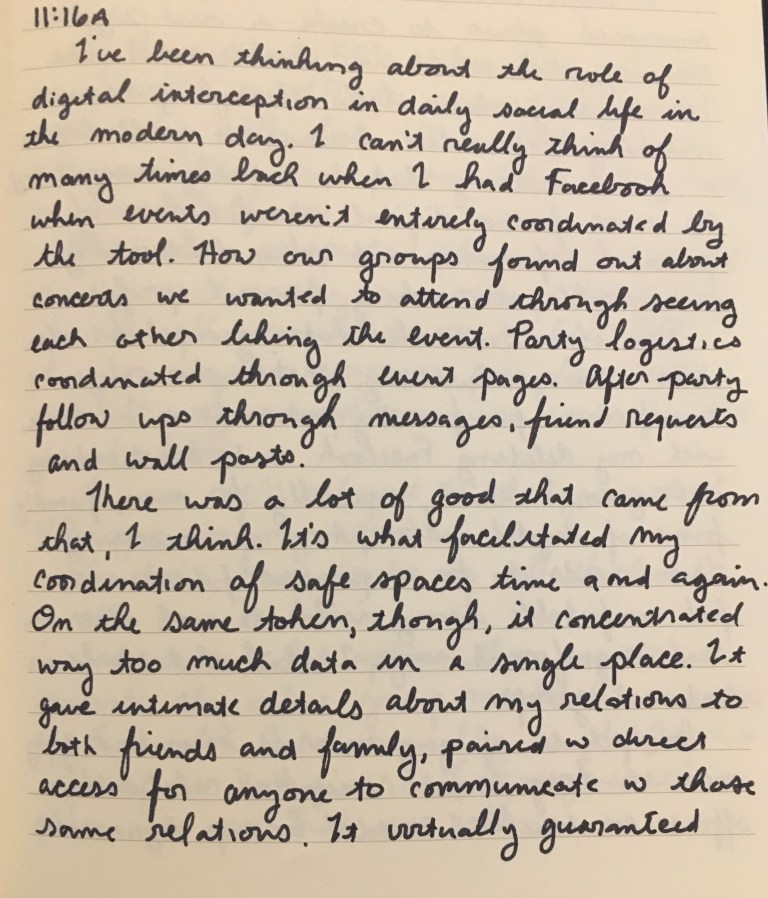 11:16A
I've been thinking about the role of
digital interception in daily social life in
the modern day. I can't really think of
many times back when I had Facebook
when events weren't entirely coordinated by
the tool. How our groups found out about
concerts we wanted to attend through seeing
each other liking the event. Party logistics
coordinated through event pages. After party
follow ups through messages, friend requests
and wall posts.
There was a lot of good that came from
that, I think. It's what facilitated my
coordination of safe spaces time and again.
On the same token, though, it concentrated
way too much data in a single place. It
gave intimate details about my relations to
both friends and family, paired w direct
access for anyone to communicate w those
same relations. It virtually guaranteed